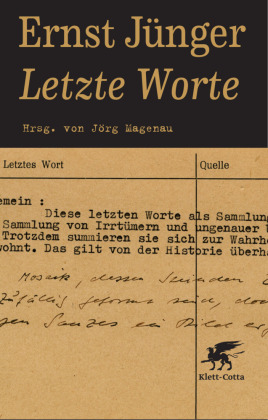 Ernst Jünger
Letzte Worte
Hrsg. von Jörg Magenau
Letztes Wort
Quelle
emein :
Diese letzten Worte als Sammlung
Sammlung von Irrtümern und ungenauer
Trotzdem summieren sie sich zur Wahrhe
wohnt. Das gilt von der Historie überha
Mosaik, dessen
zufällig geformt sind, do
gen Ganzes ein Bild er
Klett-Cotta